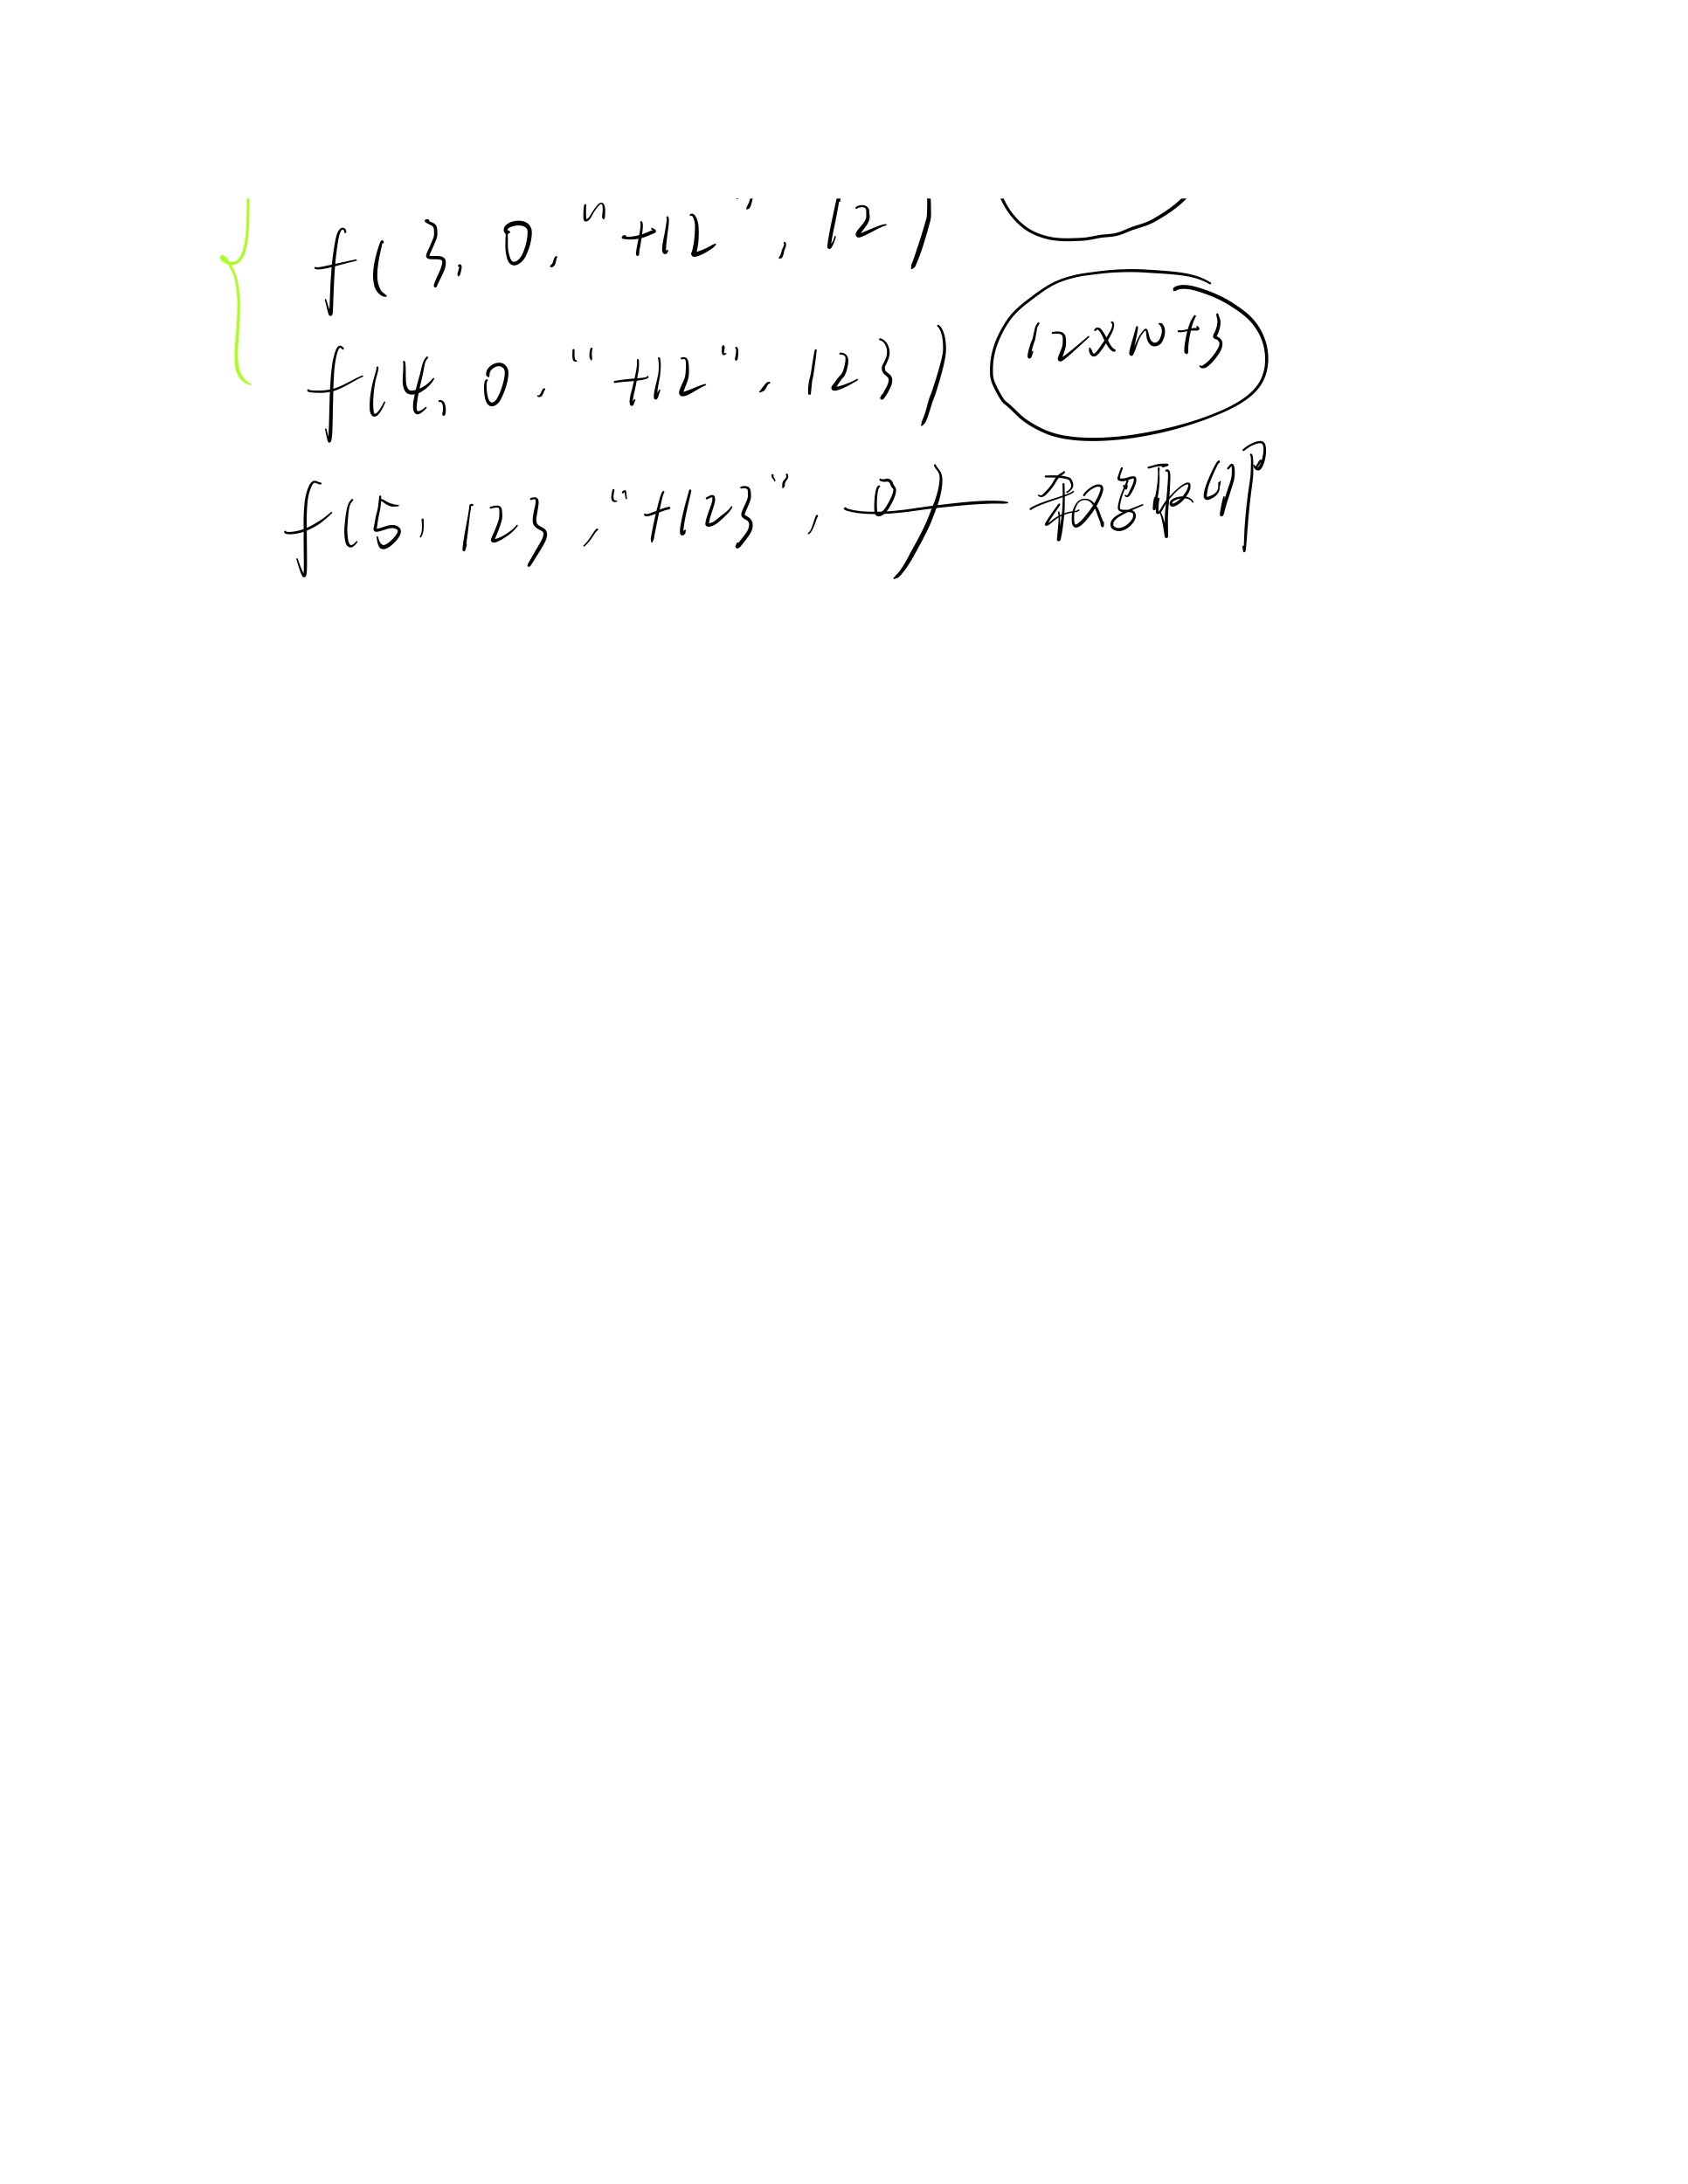 f(3, 0, "+12", 12)
f(4, 0, "+12", 123) 12×10+3
f(5, 123, "+123",